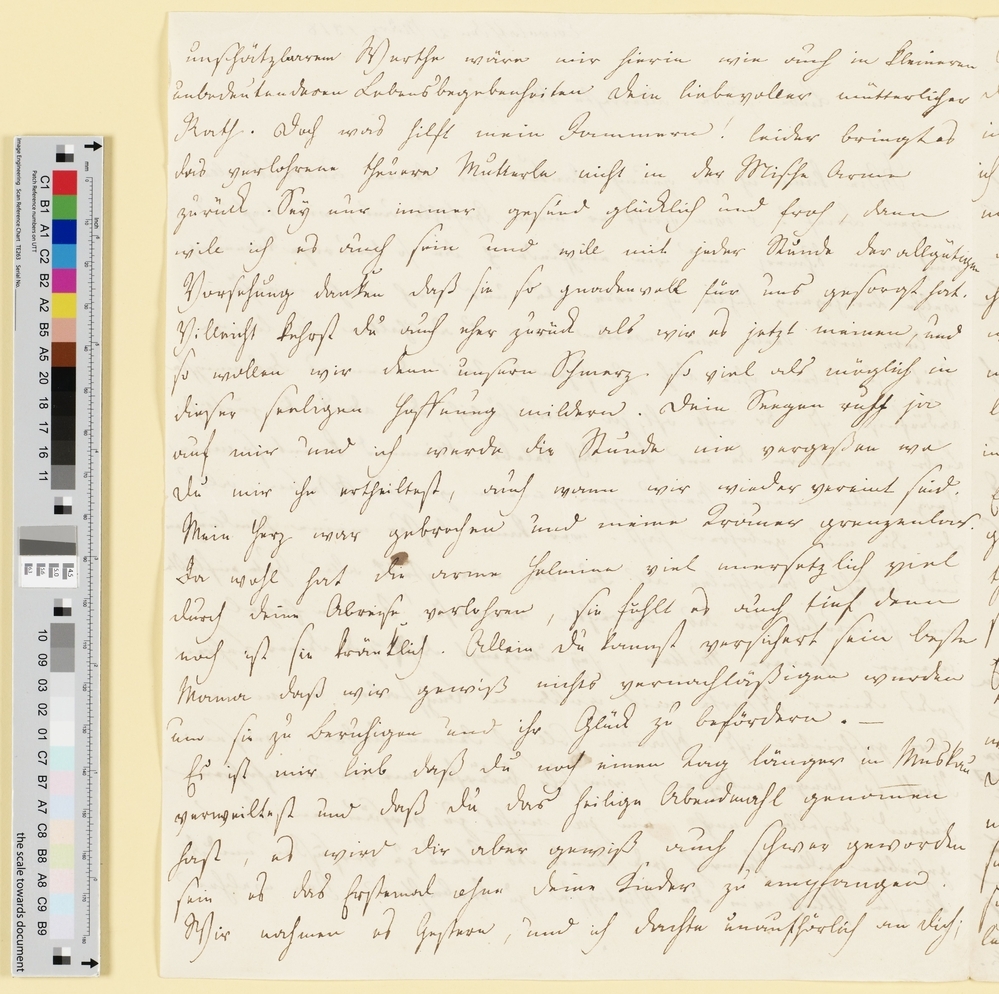 unschätzbarem Werthe wäre mir hierin wie auch in kleineren
unbedeutenderen Lebensbegebenheiten Dein liebevoller mütterlicher
Rath. Doch was hilft mein Jammern! leider bringt es
das verlohrene theuere Mutterle nicht in der Arme
zurück. Sey nur immer gesund glücklich und froh, dann
will ich es auch sein und will mit jeder Stunde der allgütigen
Vorsehung danken daß sie so gnadenvoll für uns gesorgt hat.
Villeicht kehrst du auch eher zurück als wir es jetzt meinen, und
so wollen wir denn unsern Schmerz so viel als möglich in
dieser seeligen Hoffnung mildern. Dein Seegen ruht ja
auf mir und ich werde die Stunde nie vergeßen wo
Du mir ihn ertheiltest, auch wann wir wieder vereint sind.
Mein Herz war gebrochen und meine grenzenlos.
Ja wohl hat die arme Helmine viel unersetzlich viel
durch deine Abreise verlohren, sie fühlt es auch tief denn
noch ist sie kränklich. Allein Du kannst versichert sein beste
Mama daß wir gewiß nichts vernachläßigen werden
um sie zu beruhigen und ihr Glück zu befördern. —
Es ist mir lieb daß du noch einen Tag länger in Muskau
verweiltest und daß du das heilige Abendmahl genomen
hast, es wird dir aber gewiß auch schwer geworden
sein es das Erstemal ohne deine Kinder zu empfangen.
Wir nahmen es Gestern, und ich dachte unaufhörlich an dich;
C1 B1 A1 C2 B2 A2 B5 A5 20 18 17 16 11
10 09 03 02 01 C7 B7 A7 C8 B8 A8 C9 B9
the scale towards document